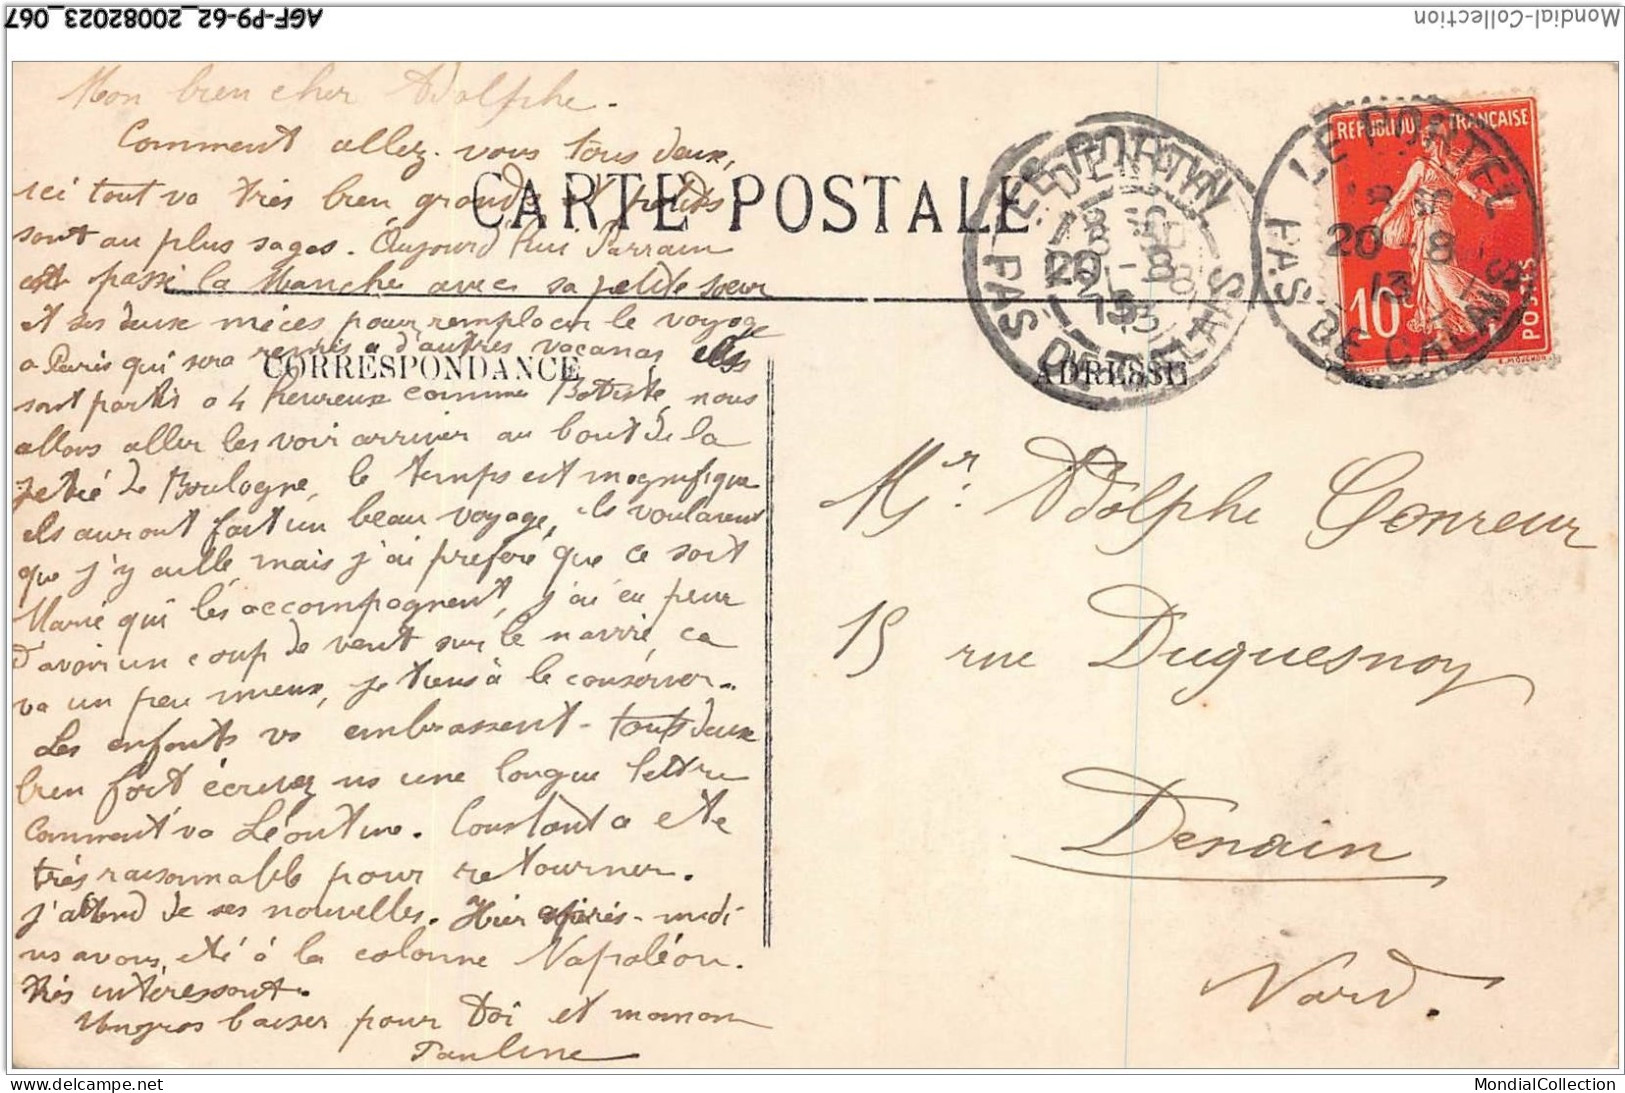 AGF-P9-62_20082023_067
Mondial-Collection
Mon bien cher Adolphe.
Comment allez-vous tous deux,
ici tout va très bien grands et petits
sont au plus sages. Aujourd'hui Parrain
est passé la Manche avec sa petite soeur
et ses deux nièces pour remplacer le voyage
a Paris qui sera remis a d'autres vacances ils
sont partis a 4 heureux comme Batiste, nous
allons aller les voir arriver au bout de la
jetée de Boulogne, le temps est magnifique
ils auront fait un beau voyage, ils voulaient
que j'y aille mais j'ai préféré que ce soit
Marie qui les accompagnent, j'ai eu peur
d'avoir un coup de vent sur le navire, ca
va un peu mieux, je tiens à le conserver.
Les enfants vs embrassent tous deux
bien fort écrivez ns une longue lettre
Comment va Léontine. Constant a été
très raisonnable pour retourner.
j'attend de ses nouvelles. Hier après-midi
ns avons été à la colonne Napoléon.
très intéressant.
Un gros baiser pour toi et maman
Pauline
CARTE POSTALE
CORRESPONDANCE
ADRESSE
LE PORTEL
PAS DE CALAIS
LE PORTEL
20-8
13
PAS DE CALAIS
REPUBLIQUE FRANÇAISE
10c
POSTES
Mr. Adolphe Gonreur
15 rue Duquesnoy
Denain
Nord.
www.delcampe.net
MondialCollection